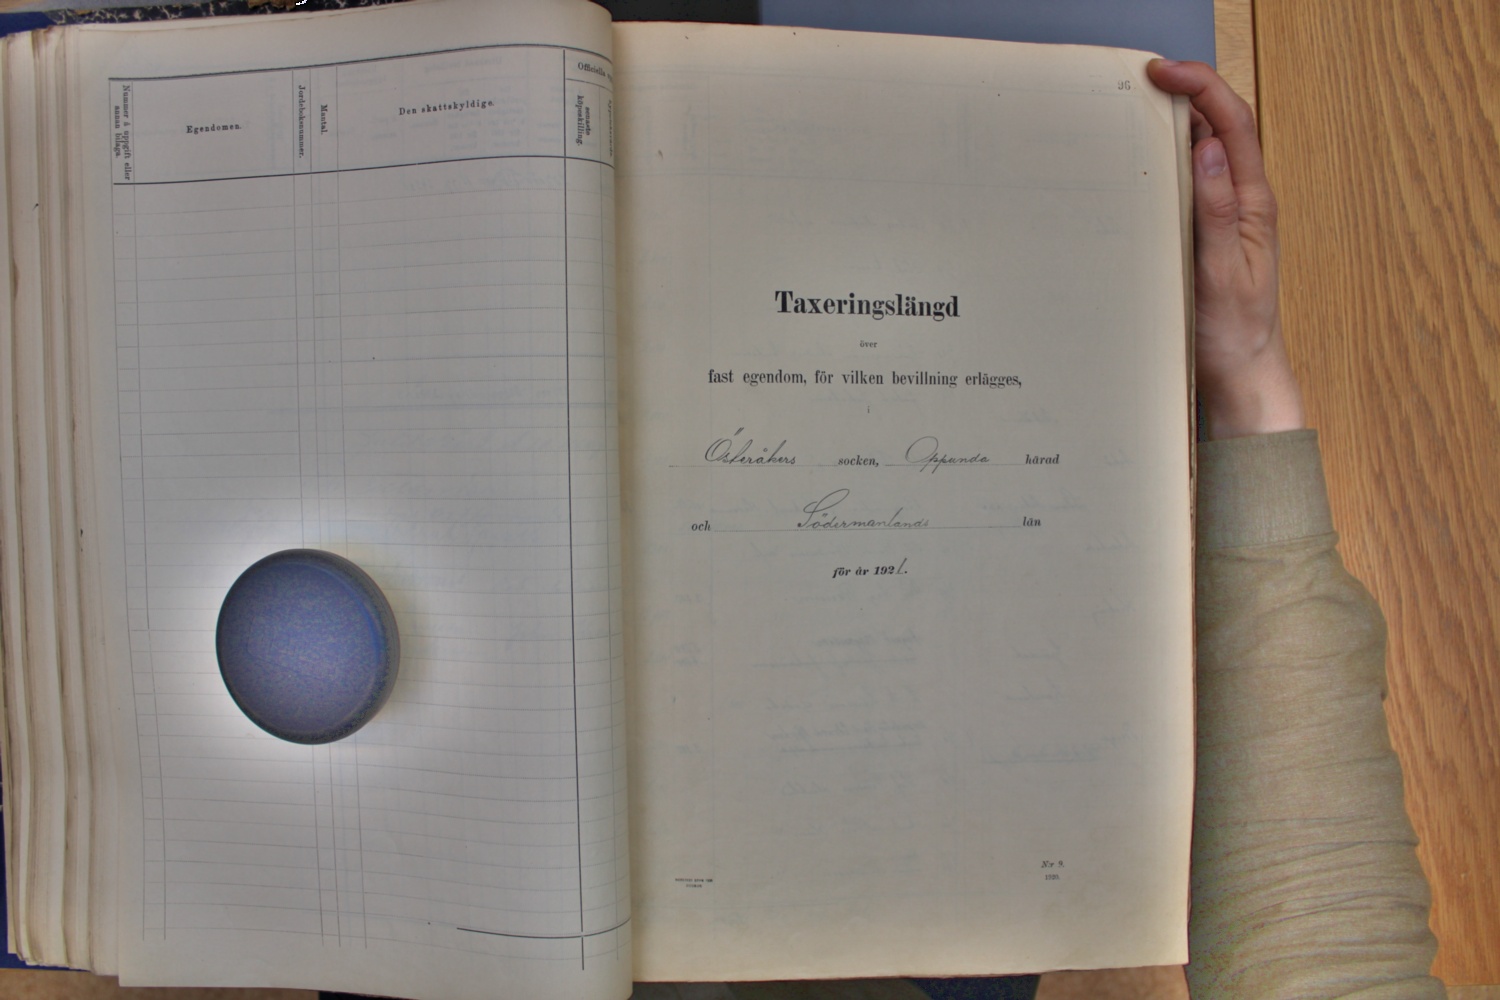 Nummer å uppgift eller
annan bilaga.
Egendomen.
Jordeboksnummer.
Mantal.
Den skattskyldige.
Officiella
senaste
köpeskilling.
96
Taxeringslängd
över
fast egendom, för vilken bevillning erlägges,
i
Österåkers socken, Oppunda härad
och Södermanlands län
för år 1921.
N:r 9.
1920.